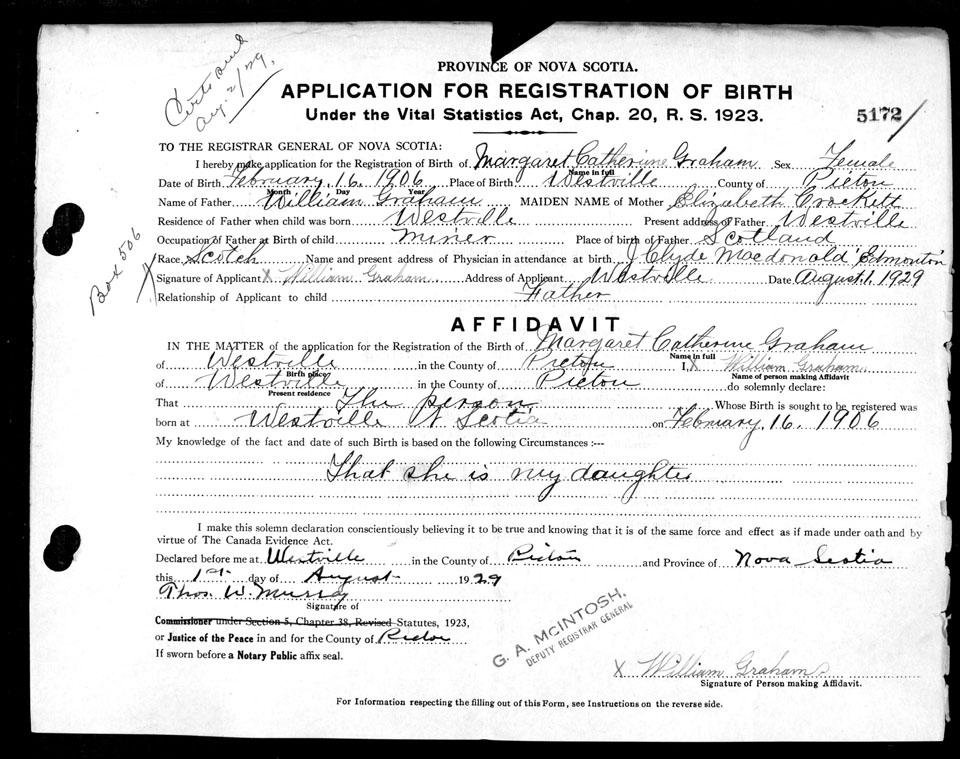 Certs and
Aug. 2/29.
PROVINCE OF NOVA SCOTIA.
APPLICATION FOR REGISTRATION OF BIRTH
Under the Vital Statistics Act, Chap. 20, R. S. 1923.
5172/
TO THE REGISTRAR GENERAL OF NOVA SCOTIA:
I hereby make application for the Registration of Birth of Margaret Catherine Graham Sex Female
Name in full
Date of Birth February 16 1906 Place of Birth Westville County of Pictou
Month Day Year
Name of Father William Graham MAIDEN NAME of Mother Elizabeth Crockett
Residence of Father when child was born Westville Present address of Father Westville
Occupation of Father at Birth of child Miner Place of birth of Father Scotland
Race Scotch Name and present address of Physician in attendance at birth J Clyde Macdonald Edmonton
Signature of Applicant X William Graham Address of Applicant Westville Date August 1. 1929
Relationship of Applicant to child Father
Box 506
X
AFFIDAVIT
IN THE MATTER of the application for the Registration of the Birth of Margaret Catherine Graham
Name in full
of Westville in the County of Pictou I, X William Graham
Birth place Name of person making Affidavit
of Westville in the County of Pictou do solemnly declare:
Present residence
That The person Whose Birth is sought to be registered was
born at Westville N Scotia on February 16. 1906
My knowledge of the fact and date of such Birth is based on the following Circumstances :---
That she is my daughter
I make this solemn declaration conscientiously believing it to be true and knowing that it is of the same force and effect as if made under oath and by
virtue of The Canada Evidence Act.
Declared before me at Westville in the County of Pictou and Province of Nova Scotia
this 1st day of August 1929
Thos. W. Murray
Signature of
Commissioner under Section 5, Chapter 38, Revised Statutes, 1923,
or Justice of the Peace in and for the County of Pictou
If sworn before a Notary Public affix seal.
G. A. McINTOSH,
DEPUTY REGISTRAR GENERAL
X William Graham
Signature of Person making Affidavit.
For Information respecting the filling out of this Form, see Instructions on the reverse side.